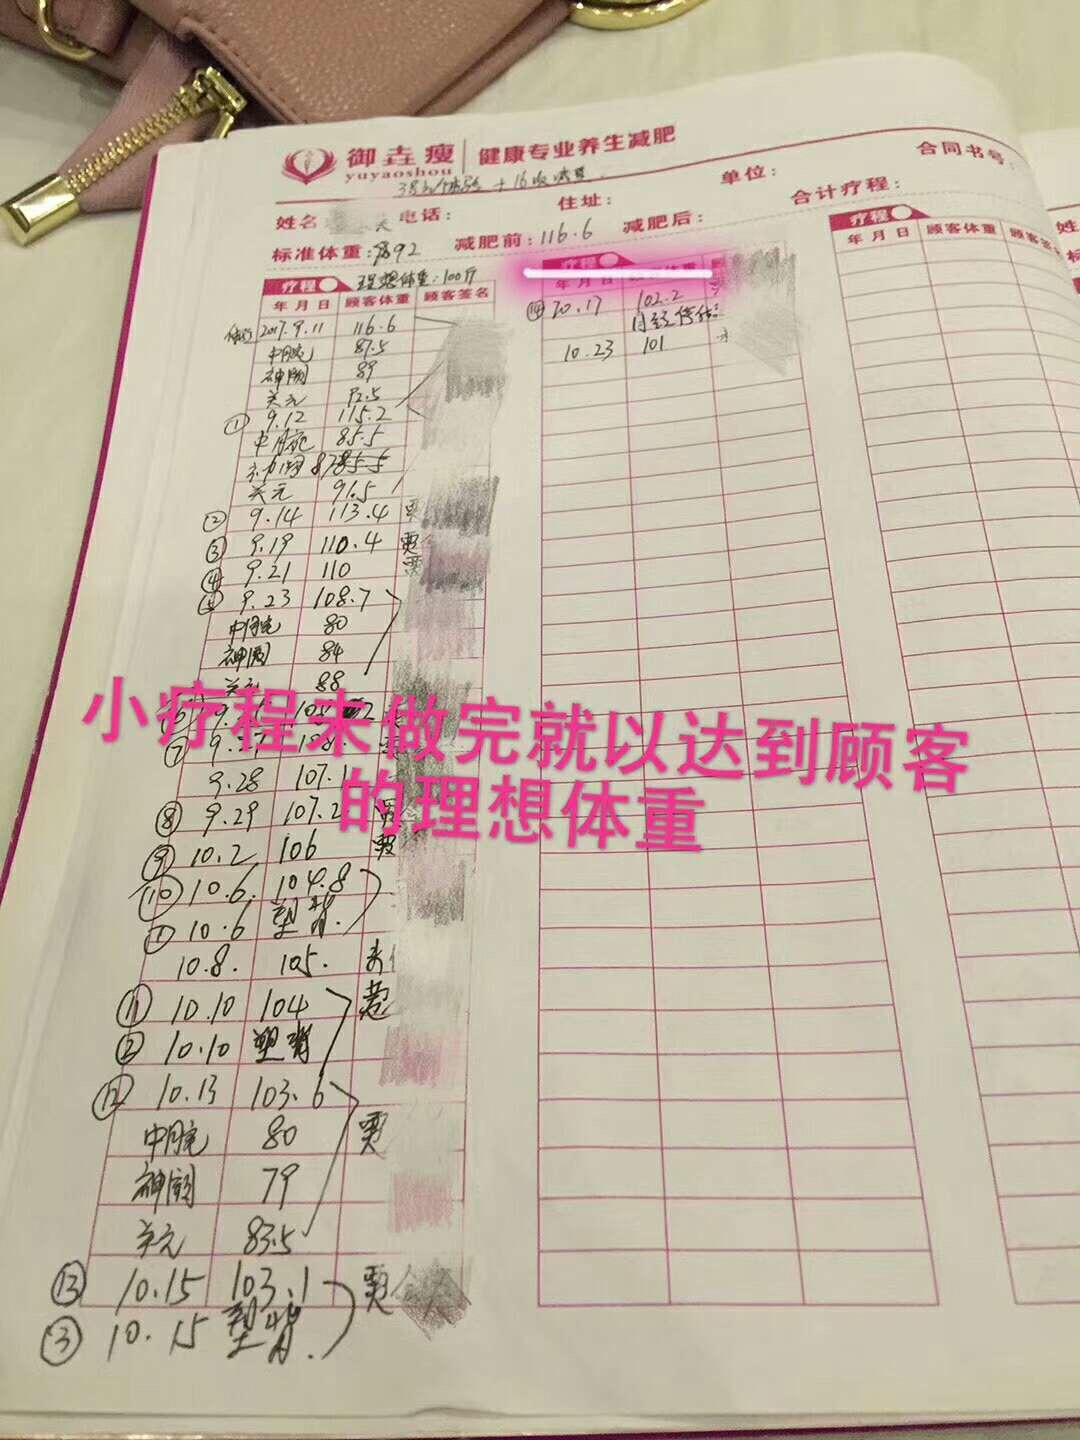 御垚瘦 健康专业养生减肥
yuyaoshou
合同书号:
姓名 电话: 住址: 单位: 合计疗程:
标准体重: 92 减肥前: 116.6 减肥后:
疗程 理想体重:100斤
年月日 顾客体重 顾客签名
2017.9.11 116.6
中脘 87.5
神阙 89
关元 92.5
① 9.12 115.2
中脘 85.5
关元 91.5
② 9.14 113.4
③ 9.19 110.4
④ 9.21 110
⑤ 9.23 108.7
中脘 80
神阙 84
关元 88
⑥
⑦
9.28 107.1
⑧ 9.29 107.2
⑨ 10.2 106
⑩ 10.6. 104.8
① 10.6 塑背.
10.8. 105.
⑪ 10.10 104
② 10.10 塑背
⑫ 10.13 103.6
中脘 80
神阙 79
关元 83.5
⑬ 10.15 103.1
③ 10.15 塑背.
疗程
年月日
⑭ 10.17 102.2
月经
10.23 101
疗程
年月日 顾客体重 顾客
小疗程未做完就以达到顾客
的理想体重